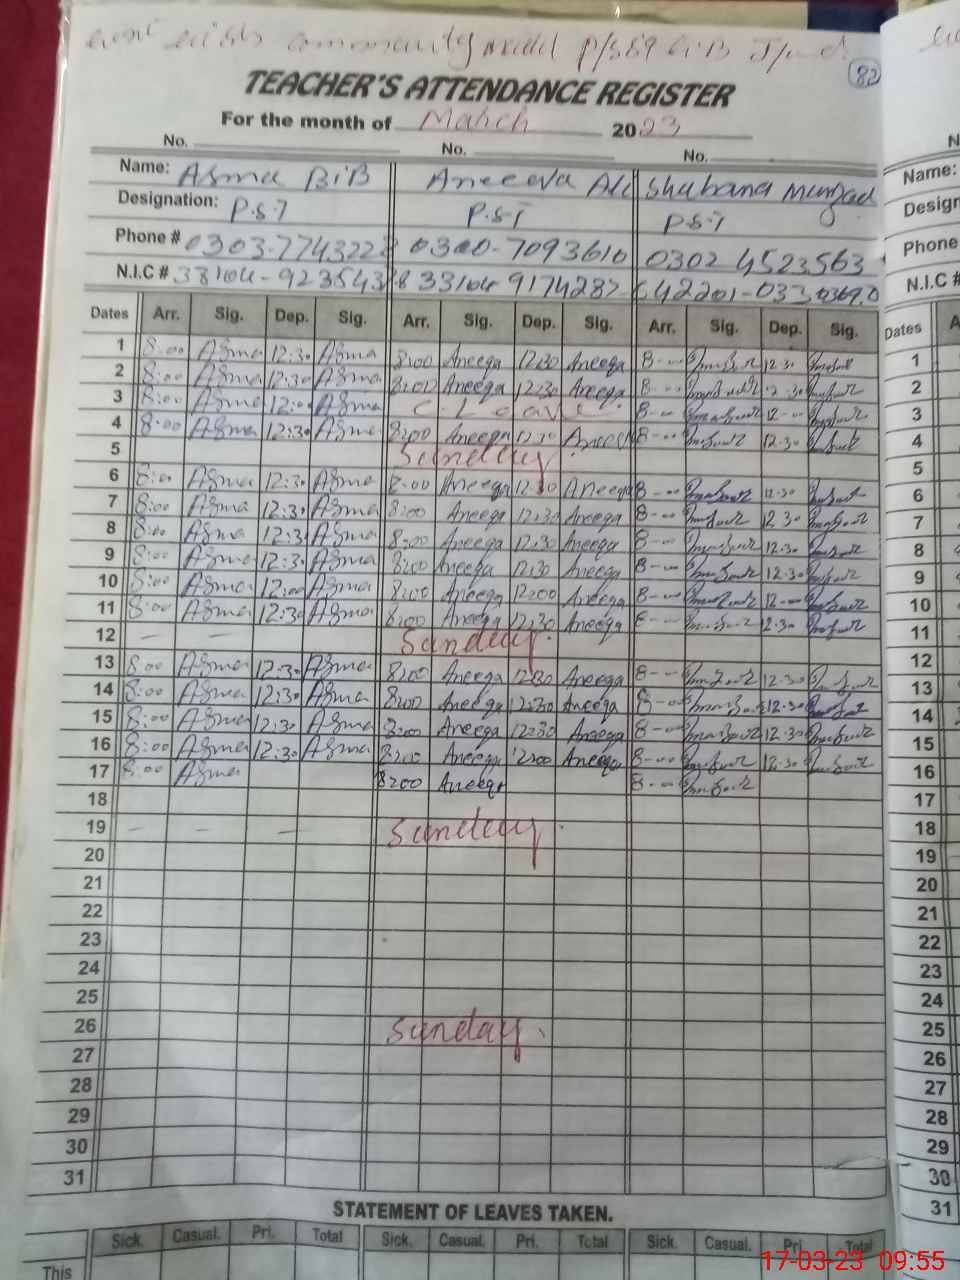 community
82
TEACHER'S ATTENDANCE REGISTER
For the month of March 2023
No. No. No.
Name: Asma BiB Aneeqa Ali Shabana Murad
Designation: P.S.T P.S.T P.S.T
Phone # 0303-7743228 0300-7093610 0302 4523563
N.I.C # 33104-923543 33104 917428 42201-033
Dates Arr. Sig. Dep. Sig. Arr. Sig. Dep. Sig. Arr. Sig. Dep. Sig.
1 8:00 Asma 12:30 Asma 8:00 Aneeqa 12:30 Aneeqa 8-00 12:30
2 8:00 Asma 12:30 Asma 8:00 Aneeqa 12:30 Aneeqa 8-00 12:30
3 8:00 Asma 12:00 Asma C. Leave 8-00 12-00
4 8:00 Asma 12:30 Asma 8:00 Aneeqa 12:30 Aneeqa 8-00 12:30
5 Sunday
6 8:00 Asma 12:30 Asma 8:00 Aneeqa 12:30 Aneeqa 8-00 12:30
7 8:00 Asma 12:30 Asma 8:00 Aneeqa 12:30 Aneeqa 8-00 12:30
8 8:00 Asma 12:30 Asma 8:00 Aneeqa 12:30 Aneeqa 8-00 12:30
9 8:00 Asma 12:30 Asma 8:00 Aneeqa 12:30 Aneeqa 8-00 12:30
10 8:00 Asma 12:00 Asma 8:00 Aneeqa 12:00 Aneeqa 8-00 12-00
11 8:00 Asma 12:30 Asma 8:00 Aneeqa 12:30 Aneeqa 8-00 12:30
12 — — Sunday
13 8:00 Asma 12:30 Asma 8:00 Aneeqa 12:30 Aneeqa 8-00 12:30
14 8:00 Asma 12:30 Asma 8:00 Aneeqa 12:30 Aneeqa 8-00 12:30
15 8:00 Asma 12:30 Asma 8:00 Aneeqa 12:30 Aneeqa 8-00 12:30
16 8:00 Asma 12:30 Asma 8:00 Aneeqa 12:00 Aneeqa 8-00 12:30
17 8:00 Asma 8:00 Aneeqa 8-00
18
19 — — — Sunday
20
21
22
23
24
25
26 Sunday
27
28
29
30
31
STATEMENT OF LEAVES TAKEN.
Sick. Casual. Pri. Total Sick. Casual. Pri. Total Sick. Casual. Pri. Total
This
Name:
Design
Phone
N.I.C #
Dates
1
2
3
4
5
6
7
8
9
10
11
12
13
14
15
16
17
18
19
20
21
22
23
24
25
26
27
28
29
30
31
17-03-23 09:55